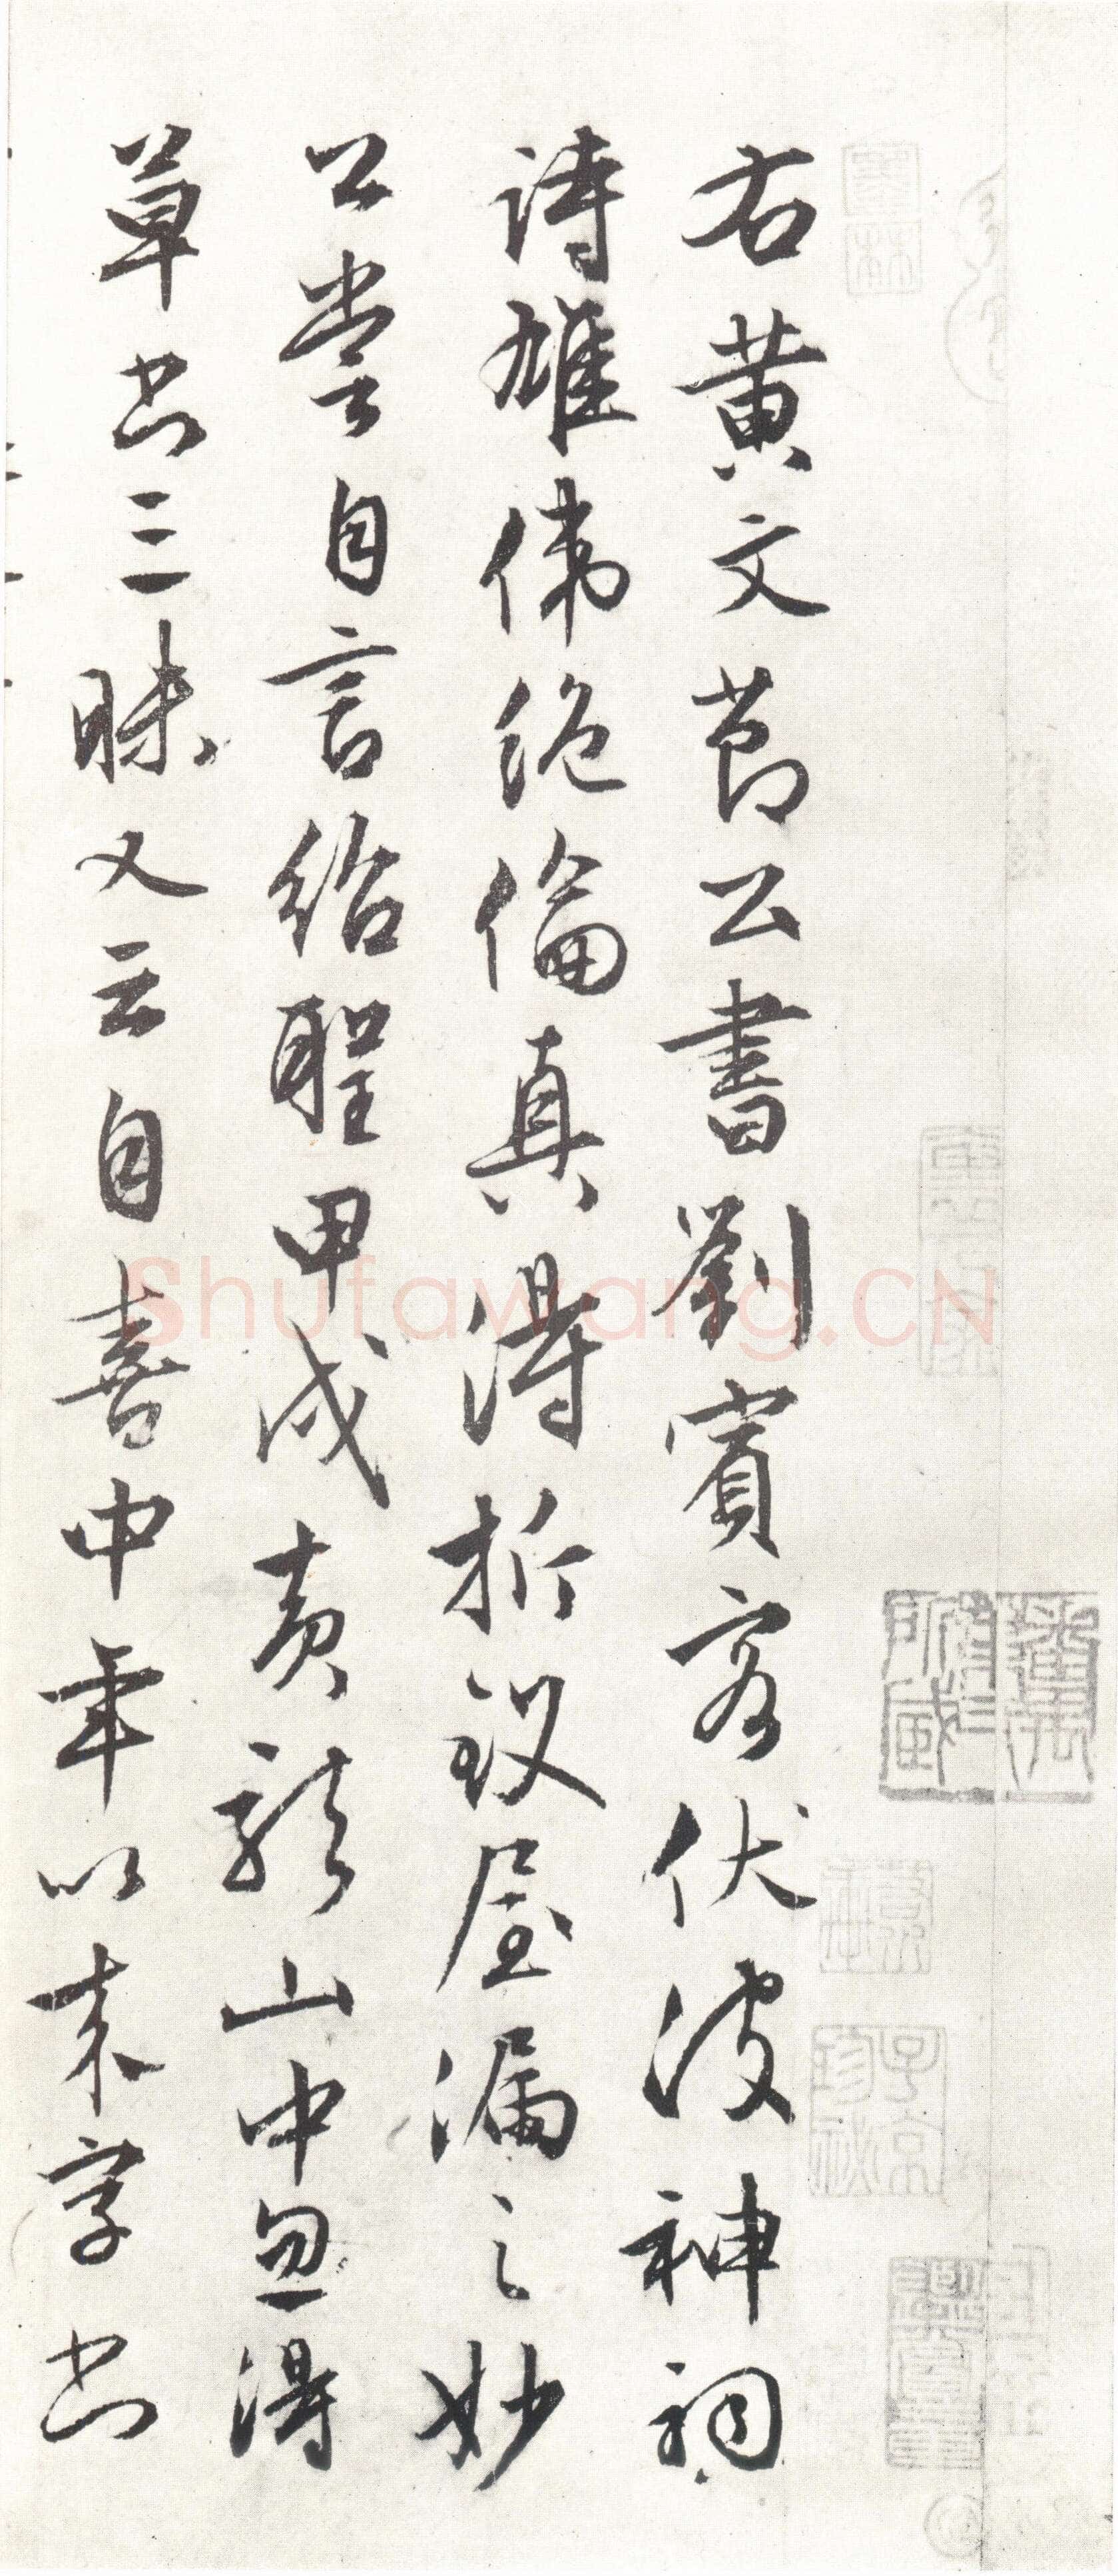 右黄文节公書劉賓客伏波神祠
詩雄偉絶倫真得折釵屋漏之妙
公嘗自言紹聖甲戌黄龍山中忽得
草书三昧又云自喜中年以来字书
Shufawang.CN
子京
珍秘